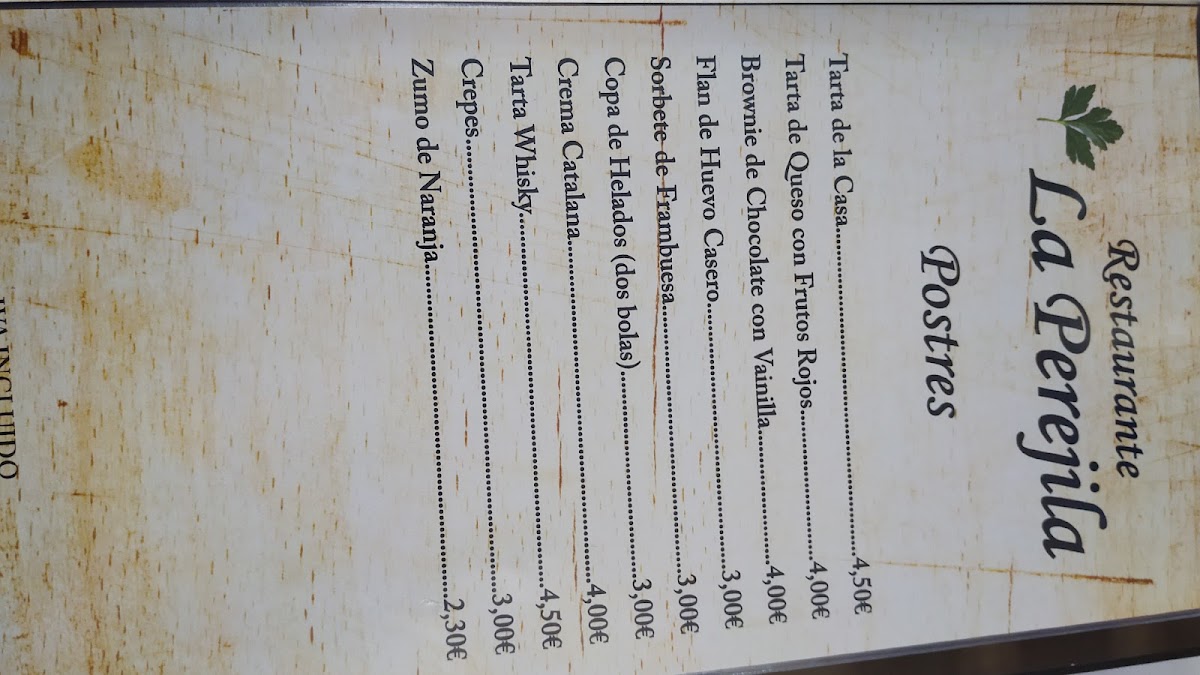 Restaurante
La Perejila
Postres
Tarta de la Casa..........4,50€
Tarta de Queso con Frutos Rojos..........4,00€
Brownie de Chocolate con Vainilla..........4,00€
Flan de Huevo Casero..........3,00€
Sorbete de Frambuesa..........3,00€
Copa de Helados (dos bolas)..........3,00€
Crema Catalana..........4,00€
Tarta Whisky..........4,50€
Crepes..........3,00€
Zumo de Naranja..........2,30€
IVA INCLUIDO